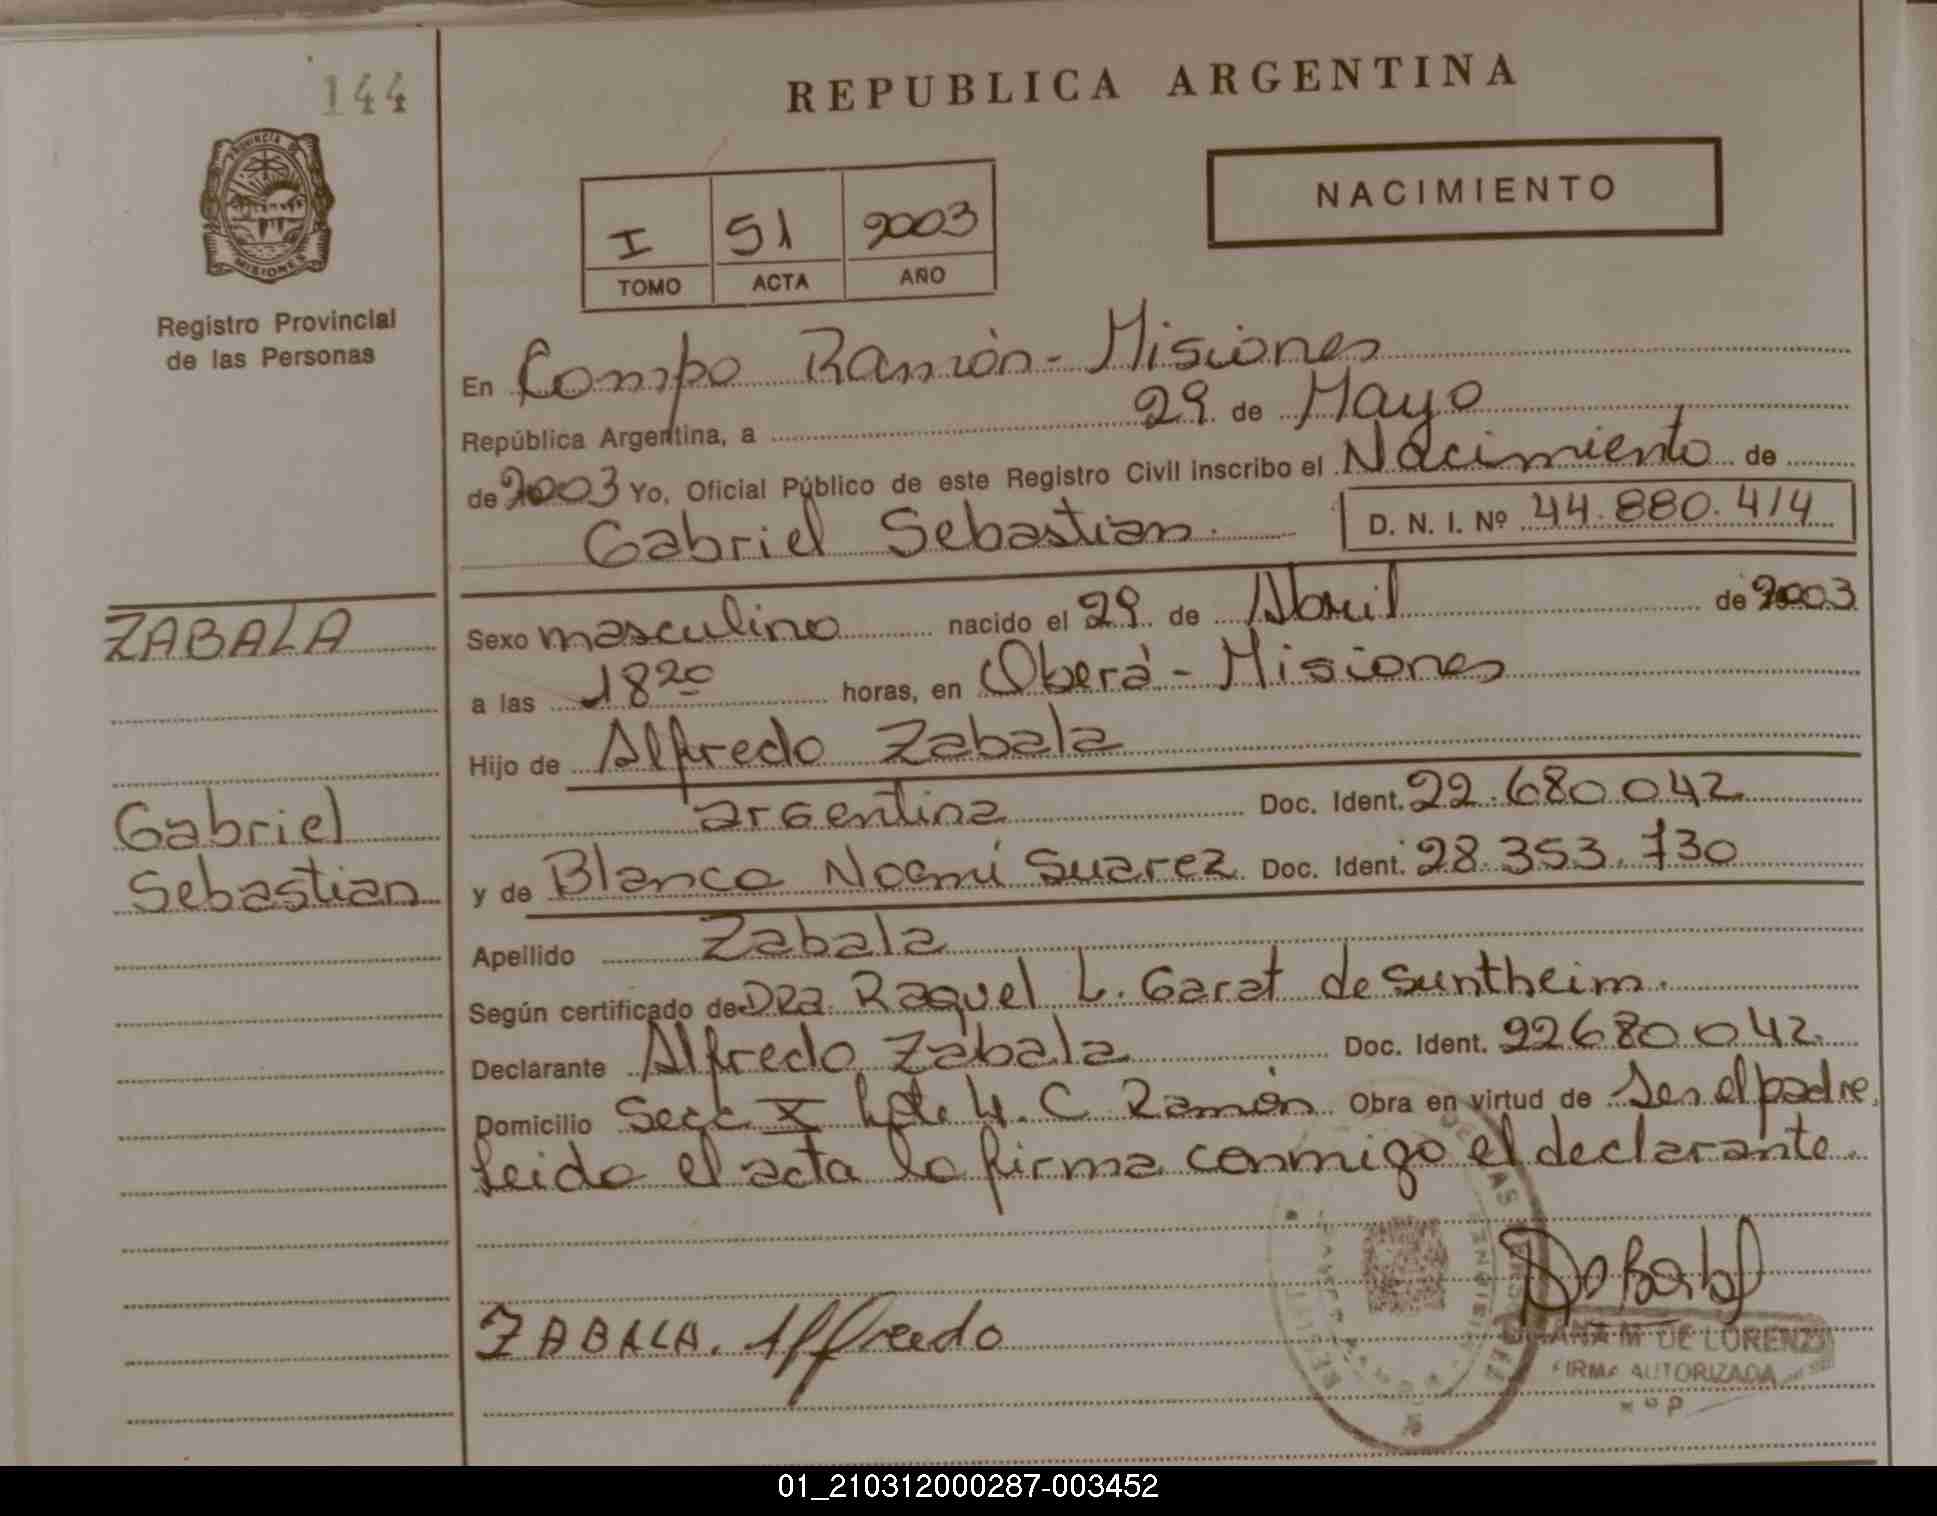 144
REPUBLICA ARGENTINA
NACIMIENTO
PROVINCIA DE
MISIONES
Registro Provincial
de las Personas
I 51 2003
TOMO ACTA AÑO
En Campo Ramón - Misiones
República Argentina, a 29 de Mayo
de 2003 Yo, Oficial Público de este Registro Civil inscribo el Nacimiento de
Gabriel Sebastian. D. N. I. Nº 44.880.414
ZABALA
Gabriel
Sebastian
Sexo masculino nacido el 29 de Abril de 2003
a las 18 20 horas, en Oberá - Misiones
Hijo de Alfredo Zabala
argentina Doc. Ident. 22.680042
y de Blanca Noemí Suarez Doc. Ident. 28.353.730
Apellido Zabala
Según certificado de Dra. Raquel L. Garat de Suntheim.
Declarante Alfredo Zabala Doc. Ident. 22680042.
Domicilio Secc X Lote 4. C. Ramón Obra en virtud de Ser el padre,
Leida el acta la firma conmigo el declarante.
ZABALA. Alfredo
M DE LORENZI
FIRMA AUTORIZADA
01_210312000287-003452